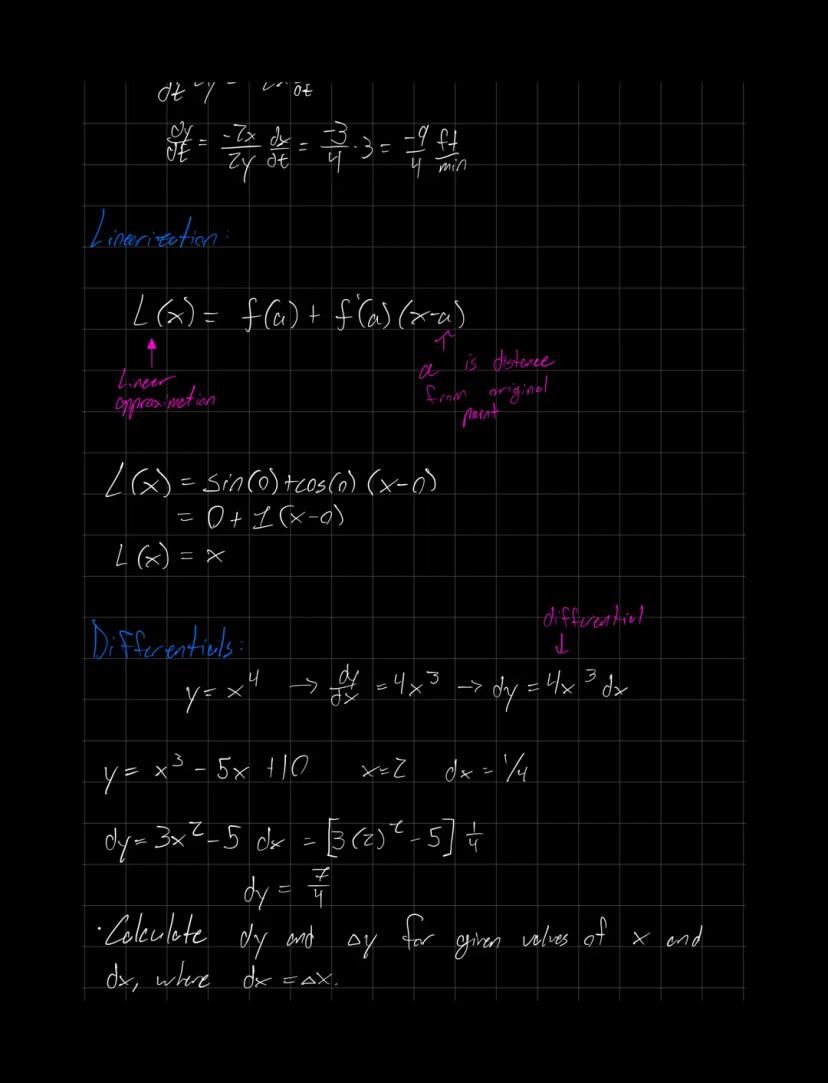 dt
dy/dt = -2x/2y dx/dt = -3/4 · 3 = -9/4 ft/min
Linearization:
L(x) = f(a) + f'(a)(x-a)
Linear approximation
a is distance from original point
L(x) = sin(0)+cos(0) (x-0)
= 0 + 1 (x-0)
L(x) = x
differential
Differentials:
y = x⁴ → dy/dx = 4x³ → dy = 4x³ dx
y = x³ - 5x + 10 x=2 dx = 1/4
dy = 3x² - 5 dx = [3(2)² - 5] 1/4
dy = 7/4
· Calculate dy and Δy for given values of x and
dx, where dx = Δx.